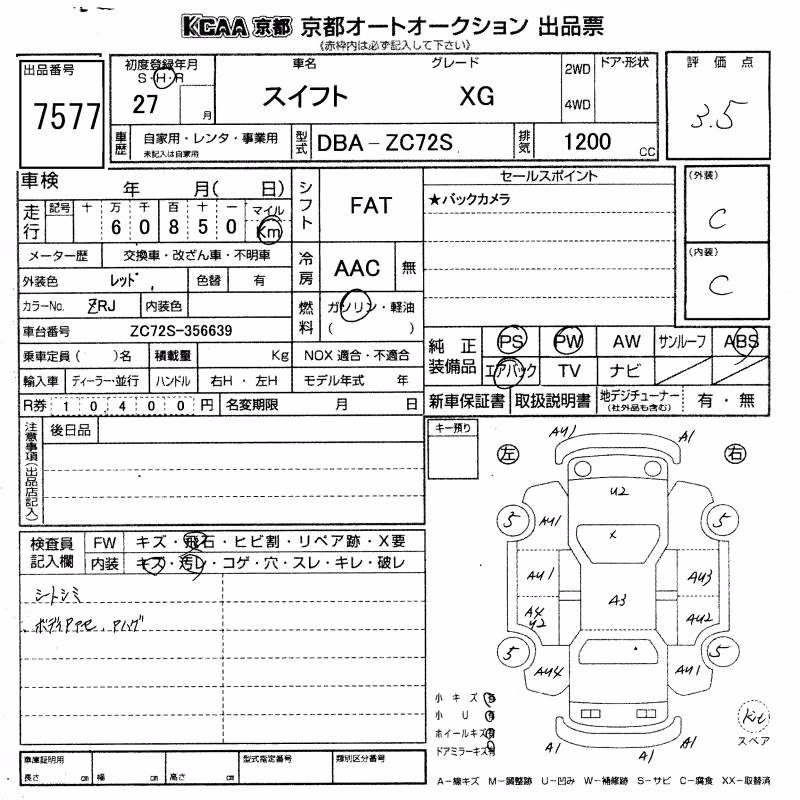 KCAA 京都 京都オートオークション 出品票
《赤枠内は必ず記入して下さい》
出品番号
7577
初度登録年月
S・H・R
27 月
車名 グレード
スイフト XG
2WD
4WD
ドア・形状
評価点
3.5
車歴
自家用・レンタ・事業用
未記入は自家用
型式 DBA-ZC72S
排気 1200 CC
車検 年 月( 日)
走行 記号 十 万 千 百 十 一 マイル
6 0 8 5 0 Km
メーター歴 交換車・改ざん車・不明車
外装色 レッド 色替 有
カラーNo. ZRJ 内装色
車台番号 ZC72S-356639
乗車定員( )名 積載量 Kg
NOX 適合・不適合
輸入車 ディーラー・並行 ハンドル 右H・左H モデル年式 年
R券 1 0 4 0 0 円 名変期限 月 日
シフト FAT
冷房 AAC 無
燃料 ガソリン・軽油
( )
セールスポイント
★バックカメラ
(外装)
C
(内装)
C
純正装備品 PS PW AW サンルーフ ABS
エアバック TV ナビ
新車保証書 取扱説明書 地デジチューナー (社外品も含む) 有・無
注意事項(出品店記入)
後日品
キー預り
検査員記入欄
FW キズ・飛石・ヒビ割・リペア跡・X要
内装 キズ・汚レ・コゲ・穴・スレ・キレ・破レ
シートシミ
左 右
AU1 A1
U2
5 5
AU1
x
AU1 AU3
A3
A4 U2 AU2
5 5
AU4 AU1
A1 A1
小キズ 有
小 U 有
ホイールキズ有
ドアミラーキズ有
Kit
スペア
車庫証明用
長さ cm 幅 cm 高さ cm
型式指定番号
類別区分番号
A-線キズ M-調整跡 U-凹み W-補修跡 S-サビ C-腐食 XX-取替済